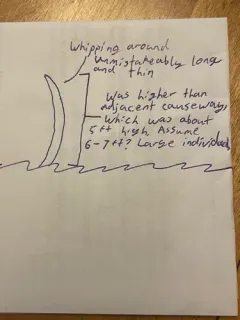 Whipping around
unmistakeably long
and thin
Was higher than
adjacent causeway,
which was about
5ft high. Assume
6-7ft? Large individual